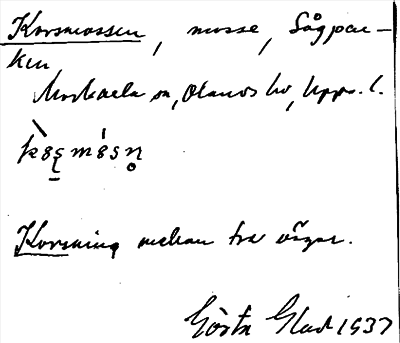 Korsmossen, mosse, Sågpar-
ken,
Morkarla sn, Olands hd, Upps. l.
Korsning mellan två vägar.
Gösta Glad 1937